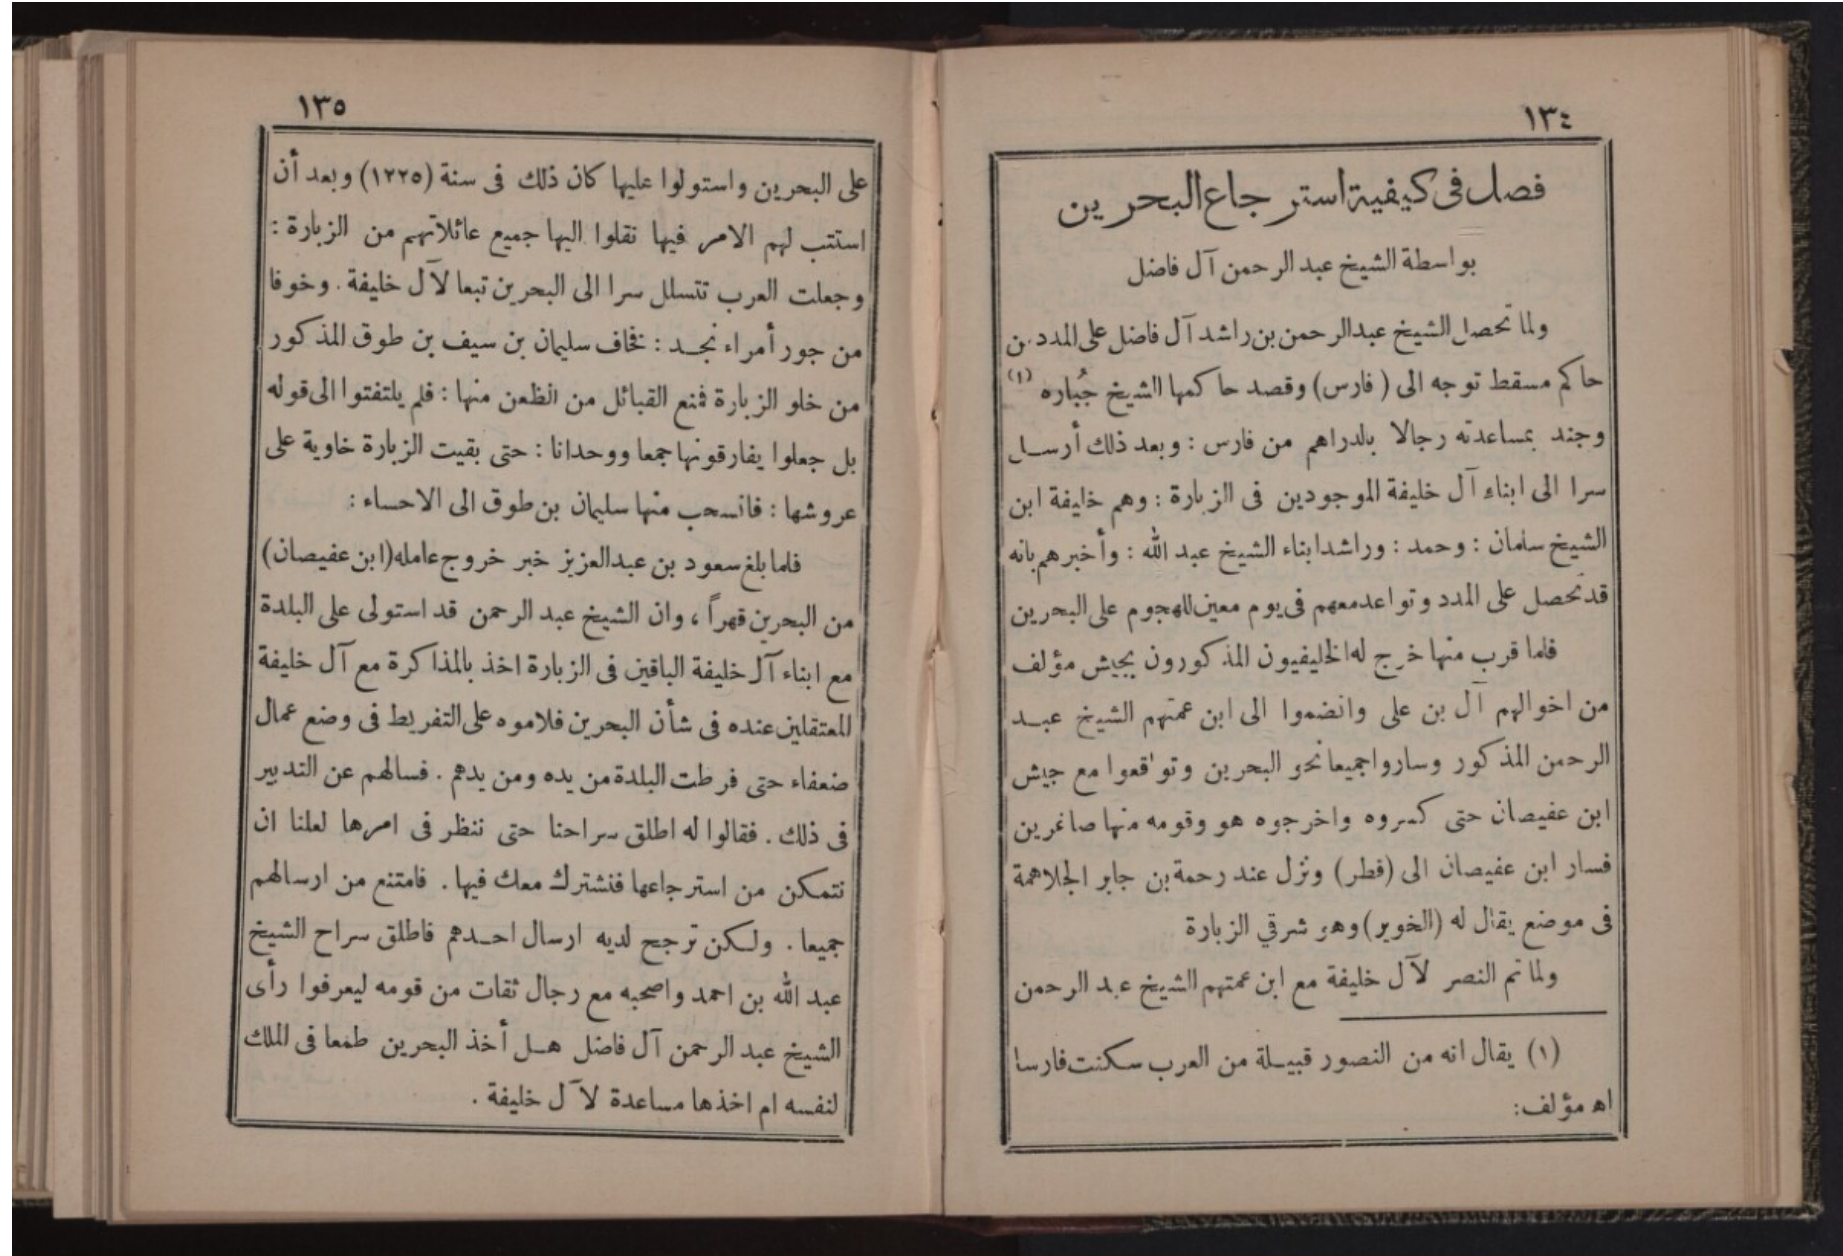 ١٣٤
فصل فى كيفية استرجاع البحرين
بواسطة الشيخ عبد الرحمن آل فاضل
ولما تحصل الشيخ عبدالرحمن بن راشد آل فاضل على المدد من
حاكم مسقط توجه الى (فارس) وقصد حاكمها الشيخ جُباره (١)
وجند بمساعدته رجالا بالدراهم من فارس : وبعد ذلك أرسل
سرا الى ابناء آل خليفة الموجودين فى الزبارة : وهم خليفة ابن
الشيخ سلمان : وحمد : وراشد ابناء الشيخ عبد الله : وأخبرهم بانه
قد تحصل على المدد وتواعد معهم فى يوم معين للهجوم على البحرين
فلما قرب منها خرج له الخليفيون المذكورون بجيش مؤلف
من اخوالهم آل بن على وانضموا الى ابن عمتهم الشيخ عبد
الرحمن المذكور وساروا جميعا نحو البحرين وتواقعوا مع جيش
ابن عفيصان حتى كسروه واخرجوه هو وقومه منها صاغرين
فسار ابن عفيصان الى (قطر) ونزل عند رحمة بن جابر الجلاهمة
فى موضع يقال له (الخوير) وهو شرقي الزبارة
ولما تم النصر لآل خليفة مع ابن عمتهم الشيخ عبد الرحمن
(١) يقال انه من النصور قبيلة من العرب سكنت فارسا
اه مؤلف:
١٣٥
على البحرين واستولوا عليها كان ذلك فى سنة (١٢٢٥) وبعد أن
استتب لهم الامر فيها نقلوا اليها جميع عائلاتهم من الزبارة :
وجعلت العرب تتسلل سرا الى البحرين تبعا لآل خليفة . وخوفا
من جور أمراء نجد : فخاف سليمان بن سيف بن طوق المذكور
من خلو الزبارة فمنع القبائل من الظعن منها : فلم يلتفتوا الى قوله
بل جعلوا يفارقونها جمعا ووحدانا : حتى بقيت الزبارة خاوية على
عروشها : فانسحب منها سليمان بن طوق الى الاحساء :
فلما بلغ سعود بن عبدالعزيز خبر خروج عامله (ابن عفيصان)
من البحرين قهراً ، وان الشيخ عبد الرحمن قد استولى على البلدة
مع ابناء آل خليفة الباقين فى الزبارة اخذ بالمذاكرة مع آل خليفة
المعتقلين عنده فى شأن البحرين فلاموه على التفريط فى وضع عمال
ضعفاء حتى فرطت البلدة من يده ومن يدهم . فسالهم عن التدبير
فى ذلك . فقالوا له اطلق سراحنا حتى ننظر فى امرها لعلنا ان
نتمكن من استرجاعها فنشترك معك فيها . فامتنع من ارسالهم
جميعا . ولكن ترجح لديه ارسال احدهم فاطلق سراح الشيخ
عبد الله بن احمد واصحبه مع رجال ثقات من قومه ليعرفوا رأى
الشيخ عبد الرحمن آل فاضل هل أخذ البحرين طمعا فى الملك
لنفسه ام اخذها مساعدة لآل خليفة .